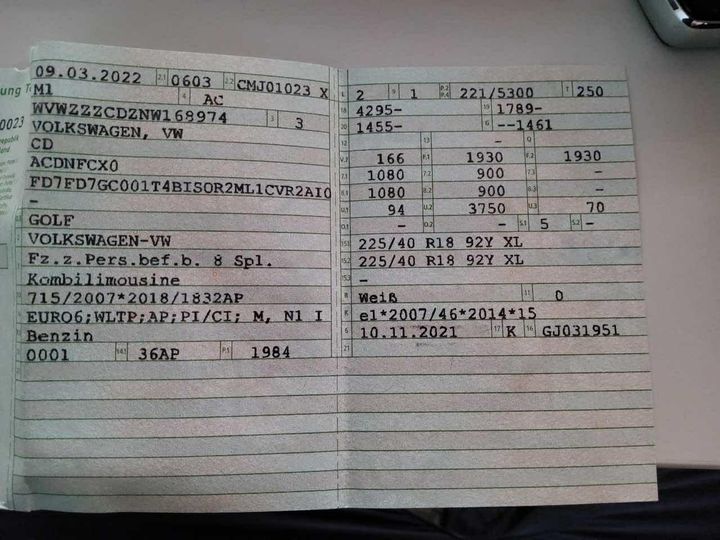 09.03.2022 2.1 0603 2.2 CMJ01023 X
M1 4 AC
WVWZZZCDZNW168974 3 3
VOLKSWAGEN, VW
CD
ACDNFCX0
FD7FD7GC001T4BISOR2ML1CVR2AI0
-
GOLF
VOLKSWAGEN-VW
Fz.z.Pers.bef.b. 8 Spl.
Kombilimousine
715/2007*2018/1832AP
EURO6;WLTP;AP;PI/CI; M, N1 I
Benzin
0001 14.1 36AP P.1 1984
L 2 9 1 P.2 P.4 221/5300 T 250
18 4295- 19 1789-
20 1455- G --1461
12 - 13 - Q
V.7 166 F.1 1930 F.2 1930
7.1 1080 7.2 900 7.3 -
8.1 1080 8.2 900 8.3 -
U.1 94 U.2 3750 U.3 70
O.1 - O.2 - S.1 5 S.2 -
15.1 225/40 R18 92Y XL
15.2 225/40 R18 92Y XL
15.3 -
R Weiß 11 0
K e1*2007/46*2014*15
6 10.11.2021 17 K 16 GJ031951
21
ung Te
0023